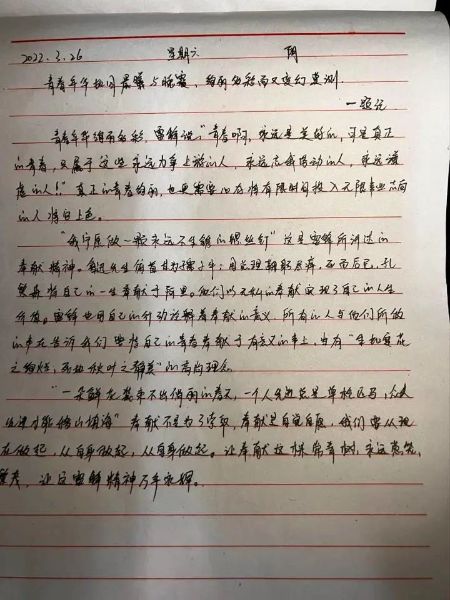 2022.3.26 星期六 阴
青春年华如同晨曦与晚霞，绚丽多彩而又变幻莫测.
—题记
青春年华绚丽多彩，雷锋说："青春啊，永远是美好的，可是真正
的青春，只属于这些永远力争上游的人，永远忘我劳动的人，永远谦
虚的人！"真正的青春绚丽，也更需要心存将有限时间投入无限事业志向
的人将自上色。
"我宁愿做一颗永远不生锈的螺丝钉"这是雷锋所讲述的
奉献精神。鲁迅先生俯首甘为孺子牛；周总理鞠躬尽瘁，死而后已，孔
繁森将自己的一生奉献于阿里。他们以无私的奉献实现了自己的人生
价值。雷锋也用自己的行动诠释着奉献的意义，所有的人与他们所做
的事无告诉我们要将自己的青春奉献于有意义的事上，当有"生如夏花
之绚烂，死如秋叶之静美"的高尚理念
"一朵鲜花装点不出绚丽的春天，一个人先进总是单枪匹马，众人
先进才能移山填海"奉献不是为了索取，奉献是自觉自愿，我们要从现
在做起，从自身做起，从自身做起。让奉献这株常青树，永远葱茏，
繁茂，让这雷锋精神万年永辉。